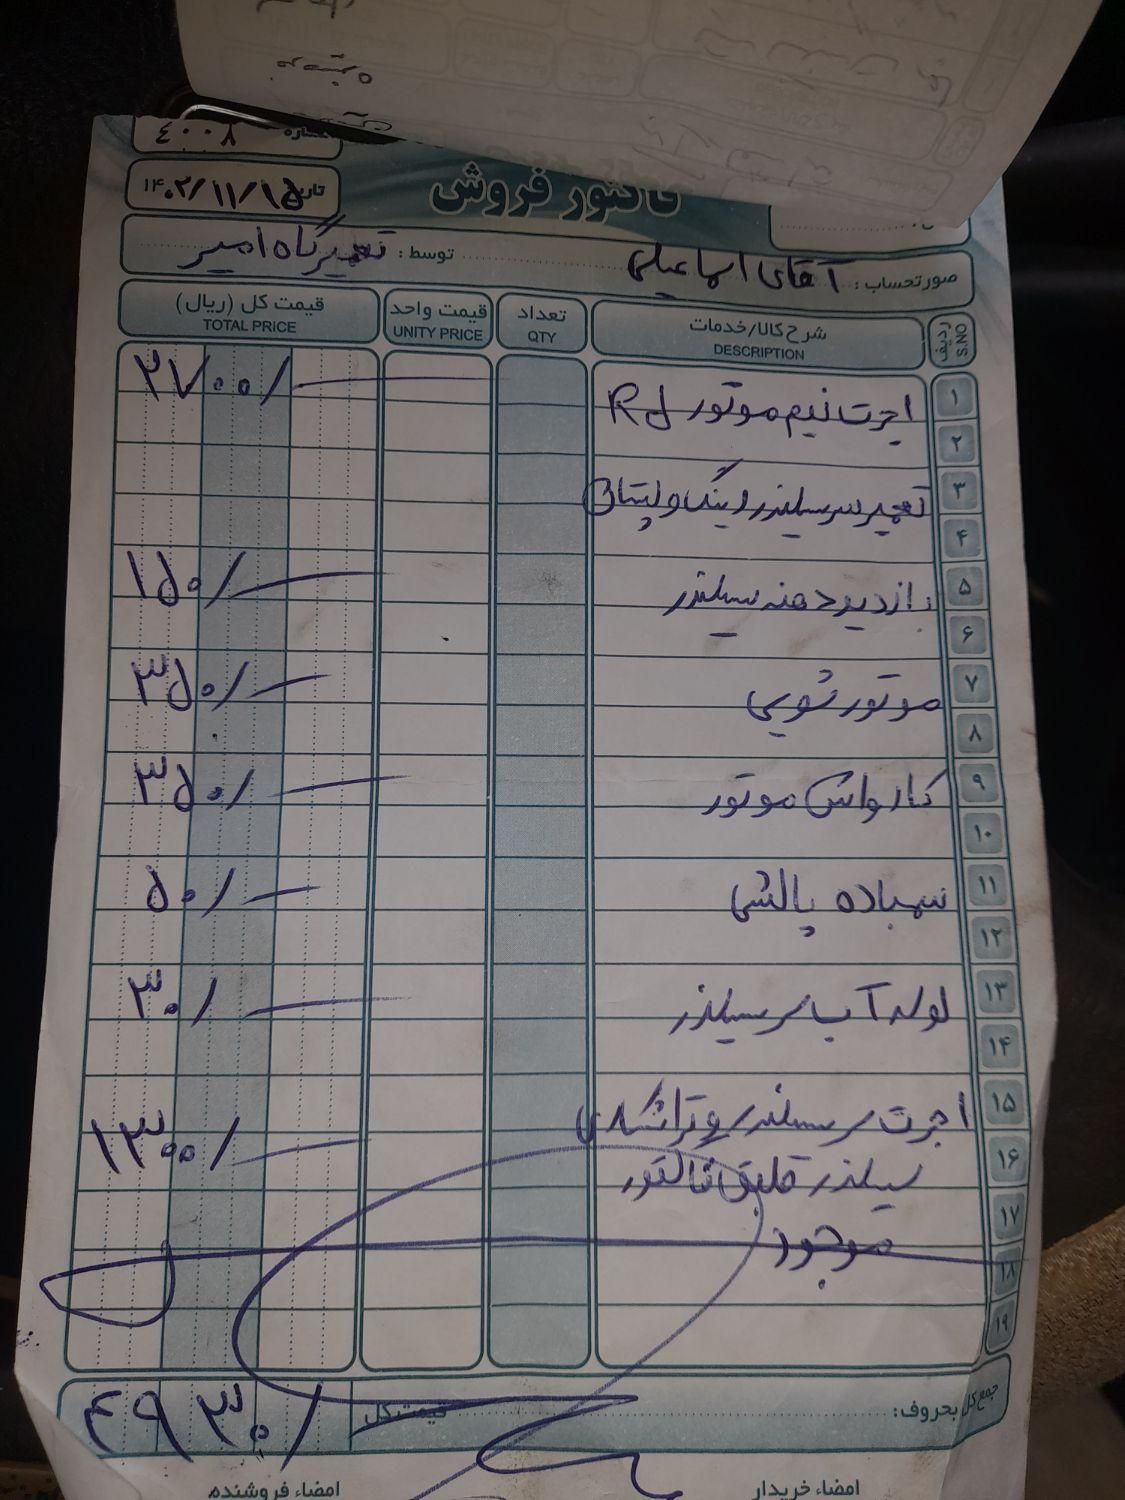 شماره ٤٠٠٨
تاریخ ١٤٠٢/١١/١٥
فاکتور فروش
صورتحساب: آقای اسماعیلی توسط: تعمیرگاه امیر
ردیف S.NO شرح کالا/خدمات DESCRIPTION تعداد QTY قیمت واحد UNITY PRICE قیمت کل (ریال) TOTAL PRICE
۱ اجرت نیم موتور Rd ۲۷۰۰/
۲
۳ تعمیر سرسیلندر رینگ و پیستان
۴
۵ بازدید دهنه سیلندر ۱۵۰/
۶
۷ موتورشویی ۳۵۰/
۸
۹ کارواش موتور ۳۵۰/
۱۰
۱۱ سمباده پالشی ۵۰/
۱۲
۱۳ لوله آب سرسیلندر ۳۰/
۱۴
۱۵ اجرت سرسیلندر و تراشکاری
۱۶ سیلندر طبق فاکتور ۱۳۰۰/
۱۷ موجود
۱۸
۱۹
جمع کل بحروف: قیمت کل ٤٩٣٠/
امضاء خریدار امضاء فروشنده